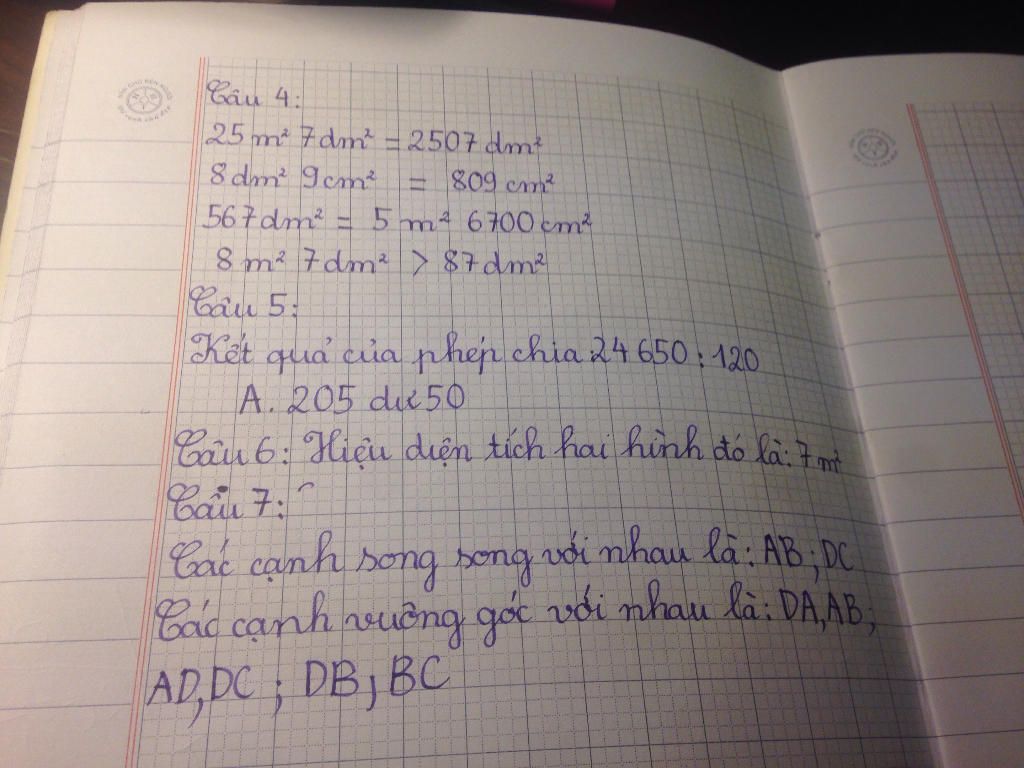 Câu 4:
25 m² 7 dm² = 2507 dm²
8 dm² 9 cm² = 809 cm²
567 dm² = 5 m² 6700 cm²
8 m² 7 dm² > 87 dm²
Câu 5:
Kết quả của phép chia 24650 : 120
A. 205 dư 50
Câu 6: Hiệu diện tích hai hình đó là: 7 m²
Câu 7:
Các cạnh song song với nhau là: AB; DC
Các cạnh vuông góc với nhau là: DA, AB;
AD, DC ; DB, BC